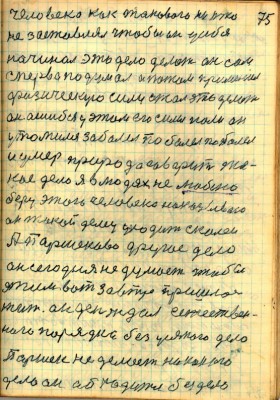 75
человека как такового никто
не заставлял чтобы он у себя
начинал это дело делать он сам
сперва подумал а потом применил
физическую силу стал это делать
он ошибся у этом со силы он
утомился заболел поболел поболел
и умер природа говорит
дело я в людях не люблю
беру этого человека наказываю
он такой делец уходит с колеи
А Паршеково другое дело
он сегодня не думает чтобы
этим вот завтра пришлось
жить. он ден ждал естествен-
ного порядка без всякого дела
Паршек не делает никакого
дела он находится без дела